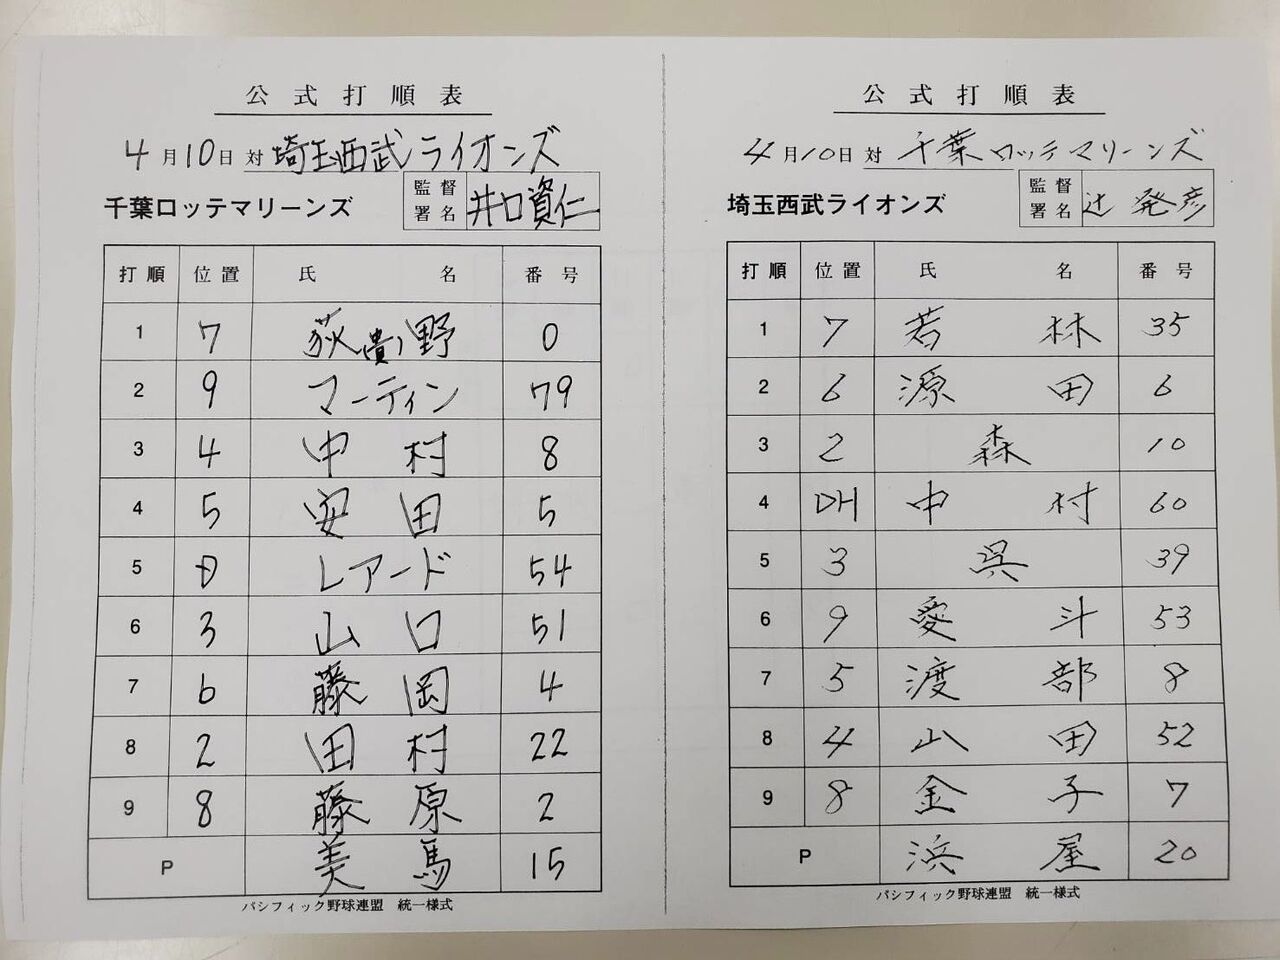 公式打順表
4月10日 対 埼玉西武ライオンズ
千葉ロッテマリーンズ 監督署名 井口資仁
打順 位置 氏名 番号
1 7 荻(貴)野 0
2 9 マーティン 79
3 4 中村 8
4 5 安田 5
5 D レアード 54
6 3 山口 51
7 6 藤岡 4
8 2 田村 22
9 8 藤原 2
P 美馬 15
パシフィック野球連盟 統一様式
公式打順表
4月10日 対 千葉ロッテマリーンズ
埼玉西武ライオンズ 監督署名 辻発彦
打順 位置 氏名 番号
1 7 若林 35
2 6 源田 6
3 2 森 10
4 DH 中村 60
5 3 呉 39
6 9 愛斗 53
7 5 渡部 8
8 4 山田 52
9 8 金子 7
P 浜屋 20
パシフィック野球連盟 統一様式